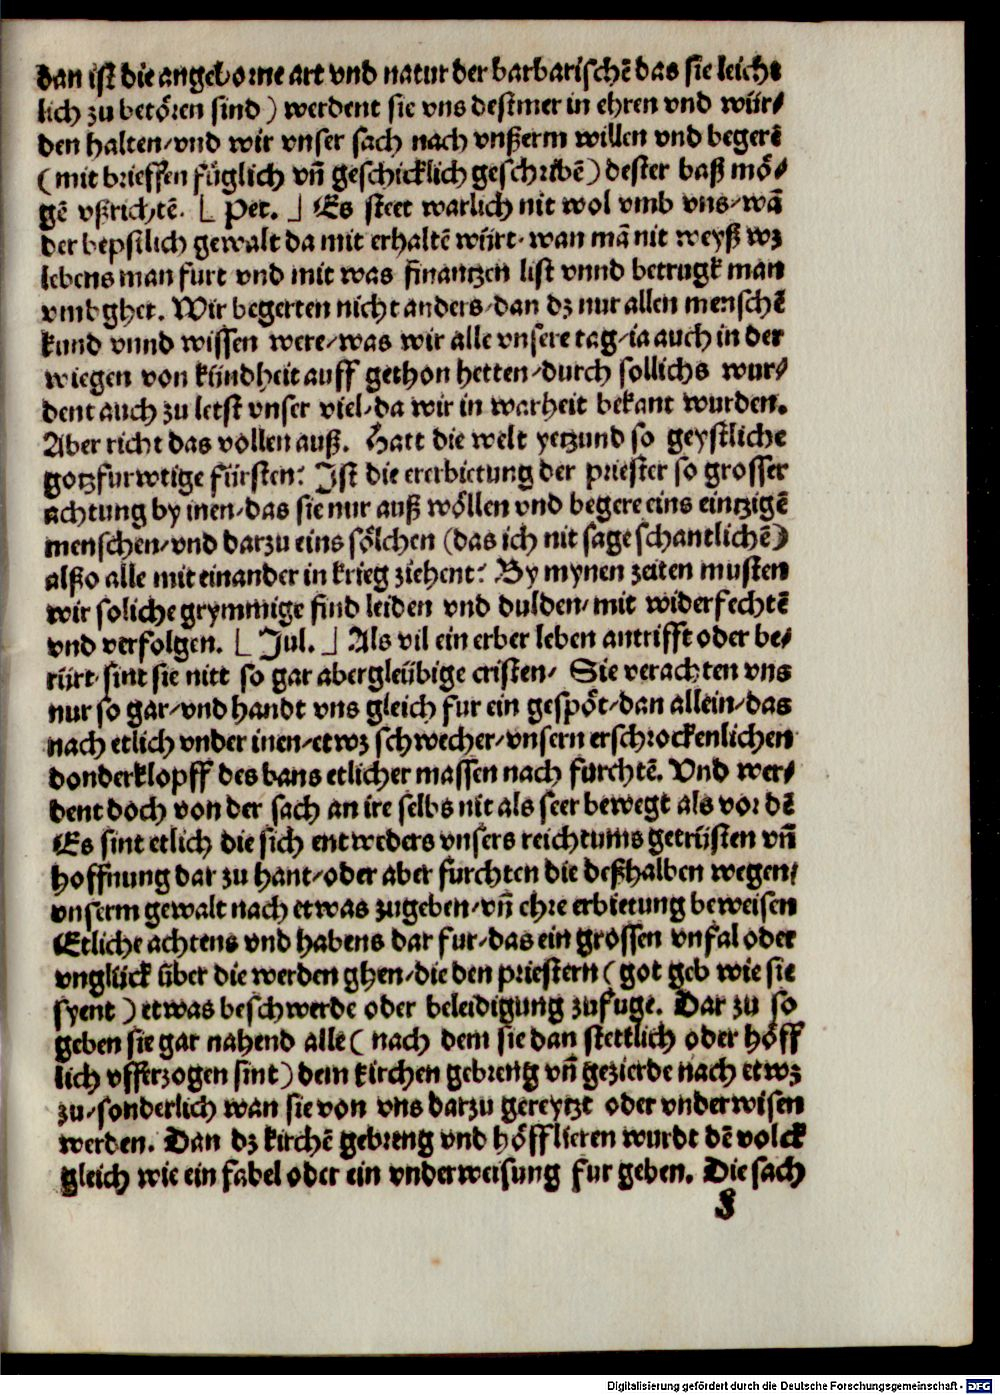 dan ist die angeborne art vnd natur der barbarischē das sie leicht
lich zu betören sind) werdent sie vns destmer in ehren vnd wür⸗
den halten/vnd wir vnser sach nach vnßerm willen vnd begerē
(mit brieffen füglich vñ geschicklich geschribē) dester baß mö⸗
gē vßrichtē. [ Pet. ] Es steet warlich nit wol vmb vns/wā
der bepstlich gewalt da mit erhaltē würt. wan mā nit weyß wz
lebens man furt vnd mit was finantzen list vnnd betrugk man
vmbghet. Wir begerten nicht anders/dan dz nur allen menschē
kund vnnd wissen were/was wir alle vnsere tag/ia auch in der
wiegen von kündheit auff gethon hetten/durch sollichs wur⸗
dent auch zu letst vnser viel/da wir in warheit bekant wurden.
Aber richt das vollen auß. Hatt die welt yetzund so geystliche
gotzfurwtige fürsten? Ist die ererbietung der priester so grosser
achtung by inen/das sie nur auß wöllen vnd begere eins eintzigē
menschen/vnd darzu eins sölchen (das ich nit sage schantlichē)
alßo alle mit einander in krieg ziehent? By mynen zeiten musten
wir soliche grymmige find leiden vnd dulden/mit widerfechtē
vnd verfolgen. [ Jul. ] Als vil ein erber leben antrifft oder be⸗
rürt/sint sie nitt so gar abergleübige cristen/ Sie verachten vns
nur so gar/vnd handt vns gleich fur ein gespöt/dan allein/das
nach etlich vnder inen/etwz schwecher/vnsern erschrockenlichen
donderklopff des bans etlicher massen nach furchtē. Vnd wer⸗
dent doch von der sach an ire selbs nit als seer bewegt als vor dē
Es sint etlich die sich entweders vnsers reichtums getrüsten vñ
hoffnung dar zu hant/oder aber fürchten die deßhalben wegen/
vnserm gewalt nach etwas zugeben/vñ ehre erbietung beweisen
Etliche achtens vnd habens dar fur/das ein grossen vnfal oder
vnglück über die werden ghen/die den priestern (got geb wie sie
syent) etwas beschwerde oder beleidigung zufuge. Dar zu so
geben sie gar nahend alle (nach dem sie dan stettlich oder höff
lich vfferzogen sint) dem kirchen gebreng vñ gezierde nach etwz
zu/sonderlich wan sie von vns darzu gereytzt oder vnderwisen
werden. Dan dz kirchē gebreng vnd höfflieren wurdt dē volck
gleich wie ein fabel oder ein vnderweisung fur geben. Die sach
Digitalisierung gefördert durch die Deutsche Forschungsgemeinschaft - DFG